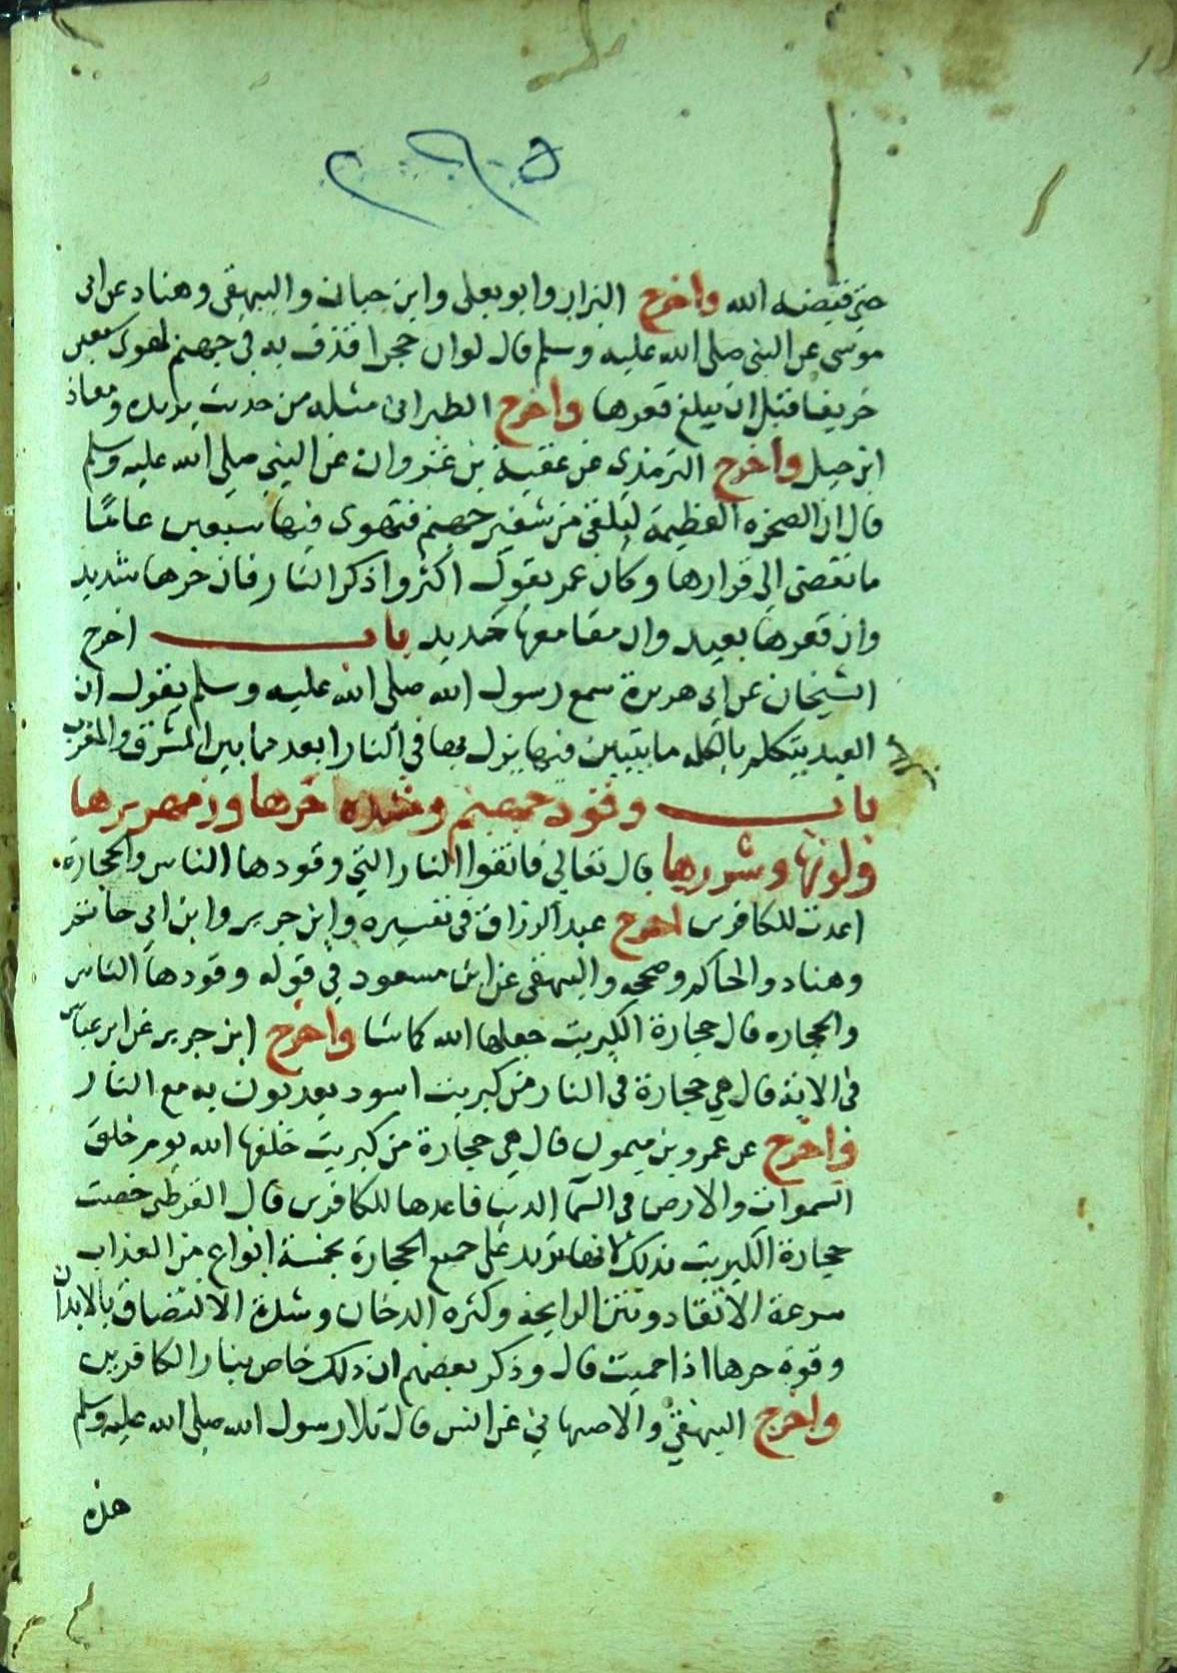 حتي قبضه الله واخرج البزار وابو يعلى وابن حبان والبيهقى وهناد عن ابى
موسى عن النبى صلى الله عليه وسلم قال لو ان حجرا قذف به فى جهنم لهوى سبعين
خريفا قبل ان يبلغ قعرها واخرج الطبرانى مثله من حديث بريده ومعاذ
ابن جبل واخرج الترمذي عن عقبة بن غزوان عن النبي صلى الله عليه وسلم
قال ان الصخره العظيمة لتلقى من شفير جهنم فتهوى فيها سبعين عاما
ما تفضى الى قرارها وكان عمر يقول اكثروا ذكر النار فان حرها شديد
وان قعرها بعيد وان مقامعها حديد باب اخرج
الشيخان عن ابى هريرة سمع رسول الله صلى الله عليه وسلم يقول ان
العبد يتكلم بالكلمه ما يتبين فيها ينزل بها فى النار ابعد مما بين المشرق والمغرب
باب وقود جهنم وشده حرها وزمهريرها
ولونها وشررها قال تعالي فاتقوا النار التي وقودها الناس والحجارة
اعدت للكافرين اخرج عبد الرزاق فى تفسيره وابن جرير وابن ابي حاتم
وهناد والحاكم وصححه والبيهقى عن ابن مسعود في قوله وقودها الناس
والحجاره قال حجارة الكبريت جعلها الله كما شا واخرج ابن جرير عن ابن عباس
فى الاية قال هي حجارة فى النار من كبريت اسود يعذبون به مع النار
واخرج عن عمرو بن ميمون قال هي حجارة من كبريت خلقها الله يوم خلق
السموات والارض فى السما الدنيا فاعدها للكافرين قال القرطبى خصت
حجارة الكبريت بذلك لانها تزيد على جميع الحجارة بخمسة انواع من العذاب
سرعة الاتقاد ونتن الرايحة وكثره الدخان وشدة الالتصاق بالابدان
وقوة حرها اذا حميت قال وذكر بعضهم ان ذلك خاص بنار الكافرين
واخرج البيهقي والاصبهاني عن انس قال تلا رسول الله صلى الله عليه وسلم
هذه